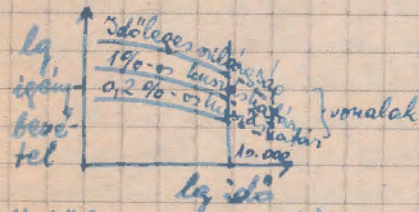 lg
igény-
bevé-
tel
Időleges szilárdság
1%-os kúszáshatár
0,2%-os kúszáshatár
} vonalak
10.000
lg idő